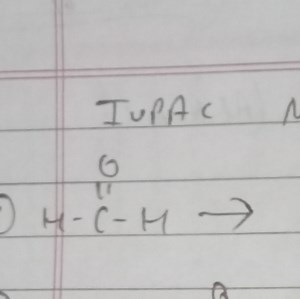 IUPAC N
O
||
H-C-H →